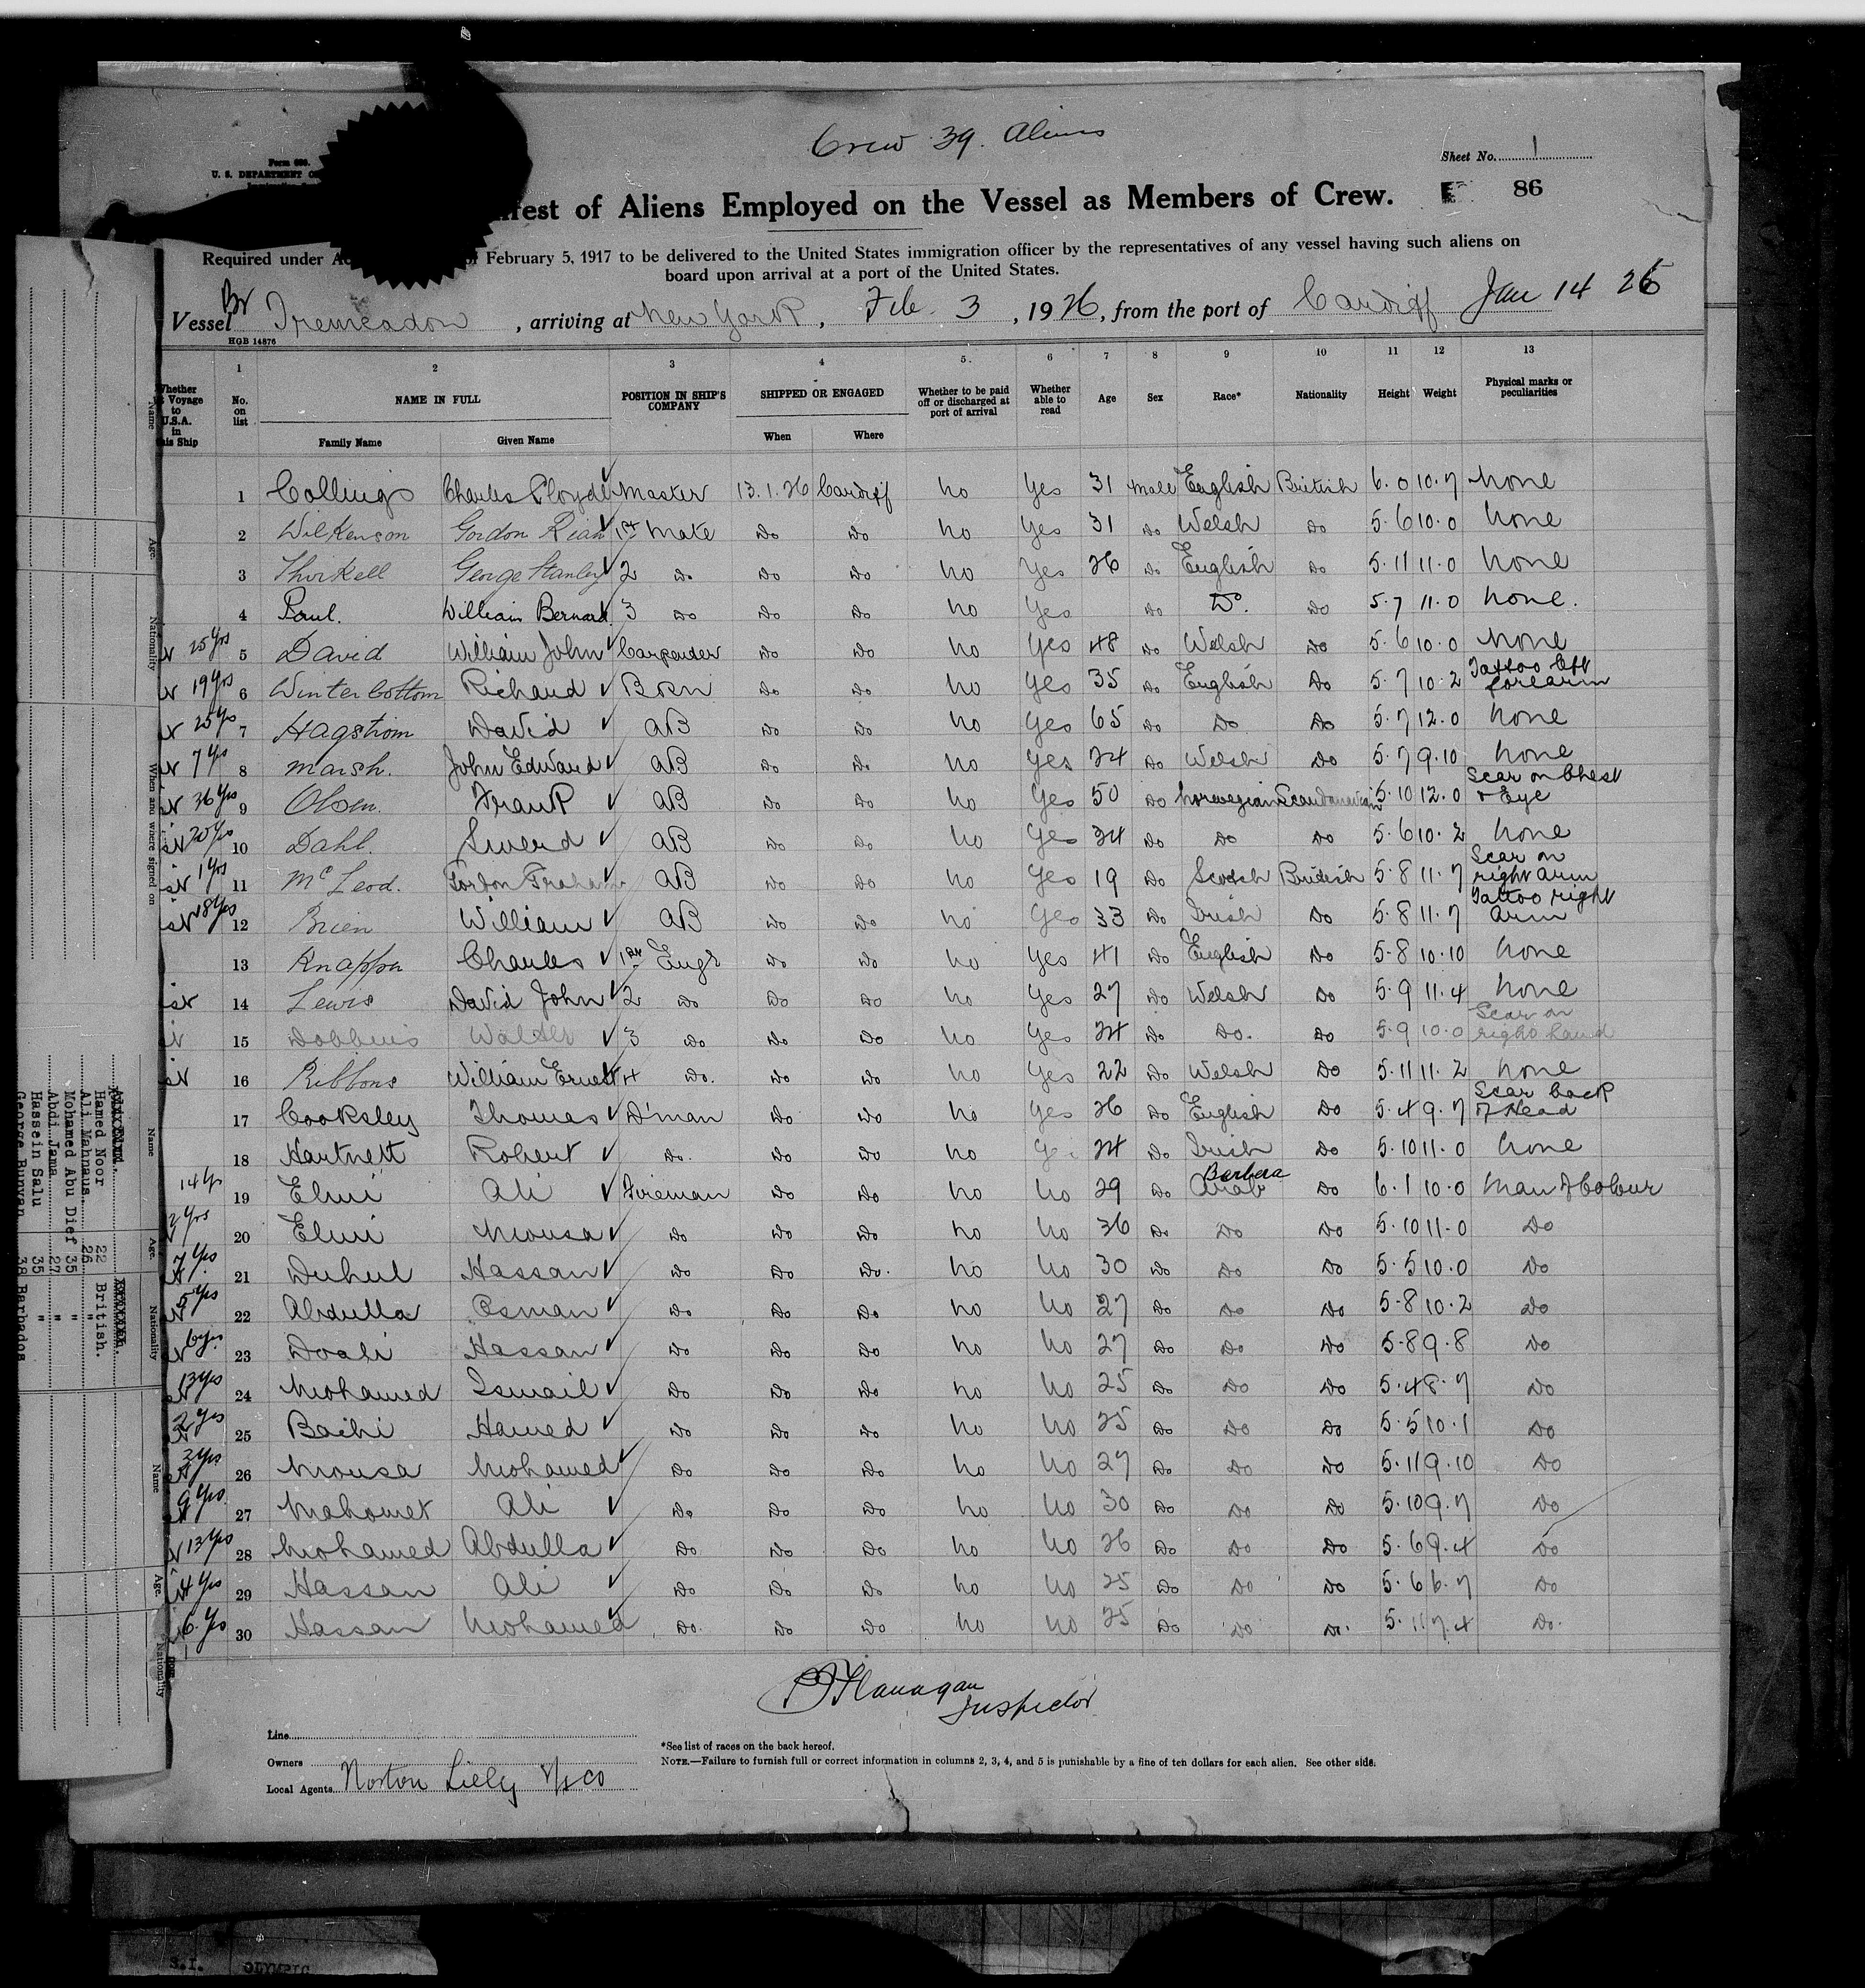 Crew 39. Aliens
Form 680.
U. S. DEPARTMENT
Sheet No. 1
86
of Aliens Employed on the Vessel as Members of Crew.
Required under February 5, 1917 to be delivered to the United States immigration officer by the representatives of any vessel having such aliens on
board upon arrival at a port of the United States.
Vessel Br Tremeadow, arriving at New York, Feb. 3, 1926, from the port of Cardiff Jan 14 26
HGB 14876
1 2 3 4 5. 6 7 8 9 10 11 12 13
Whether Voyage to U.S.A. in this Ship No. on list NAME IN FULL POSITION IN SHIP'S COMPANY SHIPPED OR ENGAGED Whether to be paid off or discharged at port of arrival Whether able to read Age Sex Race* Nationality Height Weight Physical marks or peculiarities
Family Name Given Name When Where
1 Collings Charles Master 13.1.26 Cardiff no Yes 31 Male English British 6.0 10.7 None
2 Wilkenson Gordon 1st Mate Do Do no Yes 31 Do Welsh Do 5.6 10.0 None
3 Thorkell George Stanley 2 Do Do Do no Yes 26 Do English Do 5.11 11.0 None
4 Paul. William Bernard 3 Do Do Do no Yes Do Do. Do 5.7 11.0 None.
25 Yrs 5 David William John Carpenter Do Do no Yes 48 Do Welsh Do 5.6 10.0 None
19 Yrs 6 Winterbottom Richard Bosn Do Do no Yes 35 Do English Do 5.7 10.2 Tattoo left forearm
25 Yrs 7 Hagstrom David AB Do Do no Yes 65 Do Do Do 5.7 12.0 None
7 Yrs 8 Marsh. John Edward AB Do Do no Yes 24 Do Welsh Do 5.7 9.10 None
36 Yrs 9 Olsen. Frank AB Do Do no Yes 50 Do Norwegian Scandanavian 5.10 12.0 Scar on Chest & Eye
20 Yrs 10 Dahl. Siverd AB Do Do no Yes 34 Do Do Do 5.6 10.2 None
1 Yrs 11 McLeod. Gordon Graham AB Do Do no Yes 19 Do Scotch British 5.8 11.7 Scar on right arm
18 Yrs 12 Brien William AB Do Do no Yes 33 Do Irish Do 5.8 11.7 Tattoo right arm
13 Charles 1st Engr Do Do no Yes 41 Do English Do 5.8 10.10 None
14 Lewis David John 2 Do Do Do no Yes 27 Do Welsh Do 5.9 11.4 None
15 Dobbins Walter 3 Do Do Do no Yes 24 Do Do. Do 5.9 10.0 Scar on right hand
16 Ribbons William Ernest 4 Do. Do Do no Yes 22 Do Welsh Do 5.11 11.2 None
17 Cooksley Thomas D'man Do Do no Yes 26 Do English Do 5.4 9.7 Scar back of Head
18 Hartnett Robert Do. Do Do no Yes 24 Do Irish Do 5.10 11.0 None
14 Yr 19 Elmi Ali Fireman Do Do no no 29 Do Arab Berbera Do 6.1 10.0 Man of Colour
Yrs 20 Elmi Mousa Do Do Do no no 36 Do Do Do 5.10 11.0 Do
7 Yrs 21 Duhul Hassan Do Do Do. no no 30 Do Do Do 5.5 10.0 Do
5 Yrs 22 Abdulla Osman Do Do Do no no 27 Do Do Do 5.8 10.2 Do
6 Yrs. 23 Doali Hassan Do Do Do no no 27 Do Do Do 5.8 9.8 Do
13 Yrs 24 Mohamed Ismail Do Do Do no no 25 Do Do Do 5.4 8.7 Do
2 Yrs 25 Baihi Hamed Do Do Do no no 25 Do Do Do 5.5 10.1 Do
3 Yrs 26 Mousa Mohamed Do Do Do no no 27 Do Do Do 5.11 9.10 Do
9 Yrs. 27 Mahomet Ali Do Do Do no no 30 Do Do Do 5.10 9.7 Do
13 Yrs 28 Mohamed Abdulla Do Do Do no no 26 Do Do Do 5.6 9.4 Do
4 Yrs 29 Hassan Ali Do Do Do no no 25 Do Do Do 5.6 6.7 Do
6 Yrs 30 Hassan Mohamed Do. Do Do no no 25 Do Do Do. 5.11 7.4 Do.
Flanagan
Inspector
Line
Owners
Local Agents Norton Lilly & Co
*See list of races on the back hereof.
NOTE.—Failure to furnish full or correct information in columns 2, 3, 4, and 5 is punishable by a fine of ten dollars for each alien. See other side.
Name
Age.
Nationality
When and where signed on
Name
Age.
Nationality
Hamed Noor 22 British.
Ali Mahnaus. 26 "
Mohamed Abu Dief 35 "
Abdi Jama 27 "
Hassein Salu 35 "
George Bunyan 38 Barbados
Name
Age.
Nationality
S.I. OLYMPIC